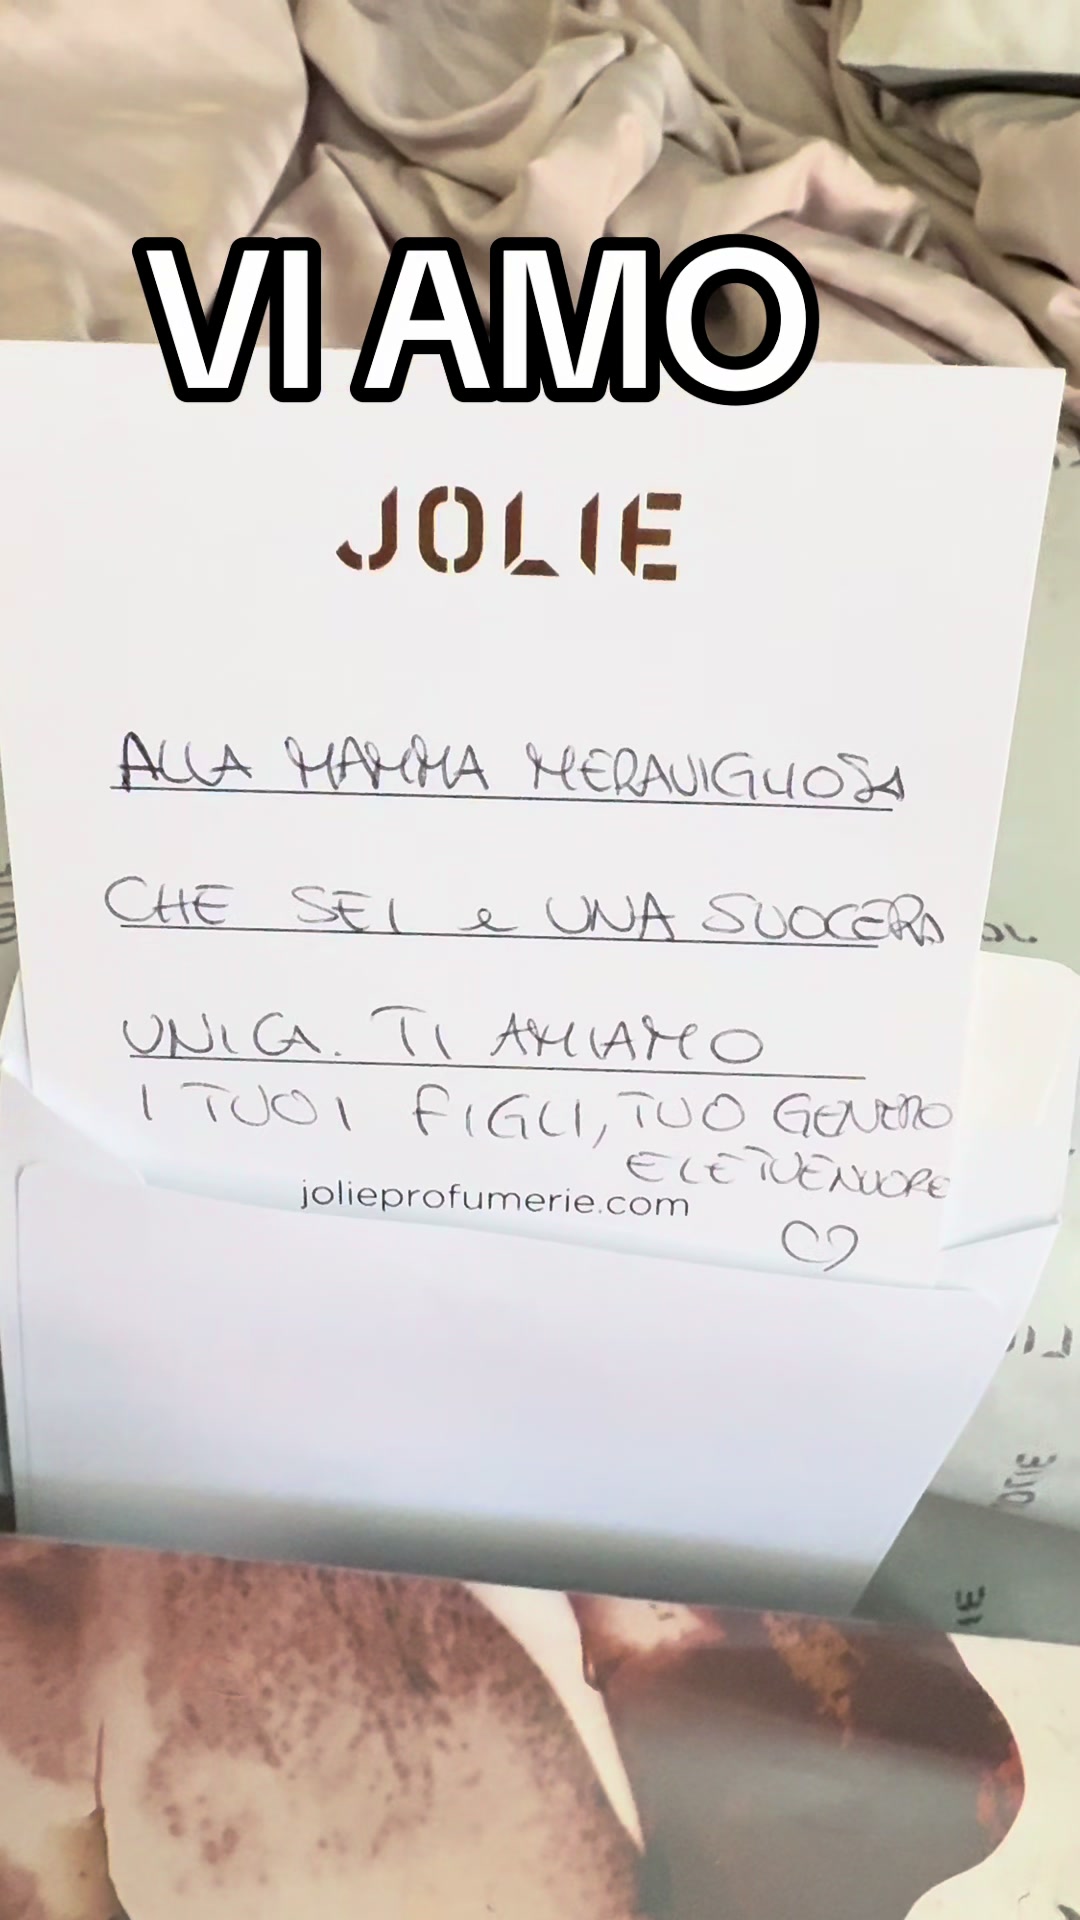 VI AMO
JOLIE
ALLA MAMMA MERAVIGLIOSA
CHE SEI e UNA SUOCERA
UNICA. TI AMIAMO
I TUOI FIGLI, TUO GENERO
E LE TUE NUORE
jolieprofumerie.com
JOLIE